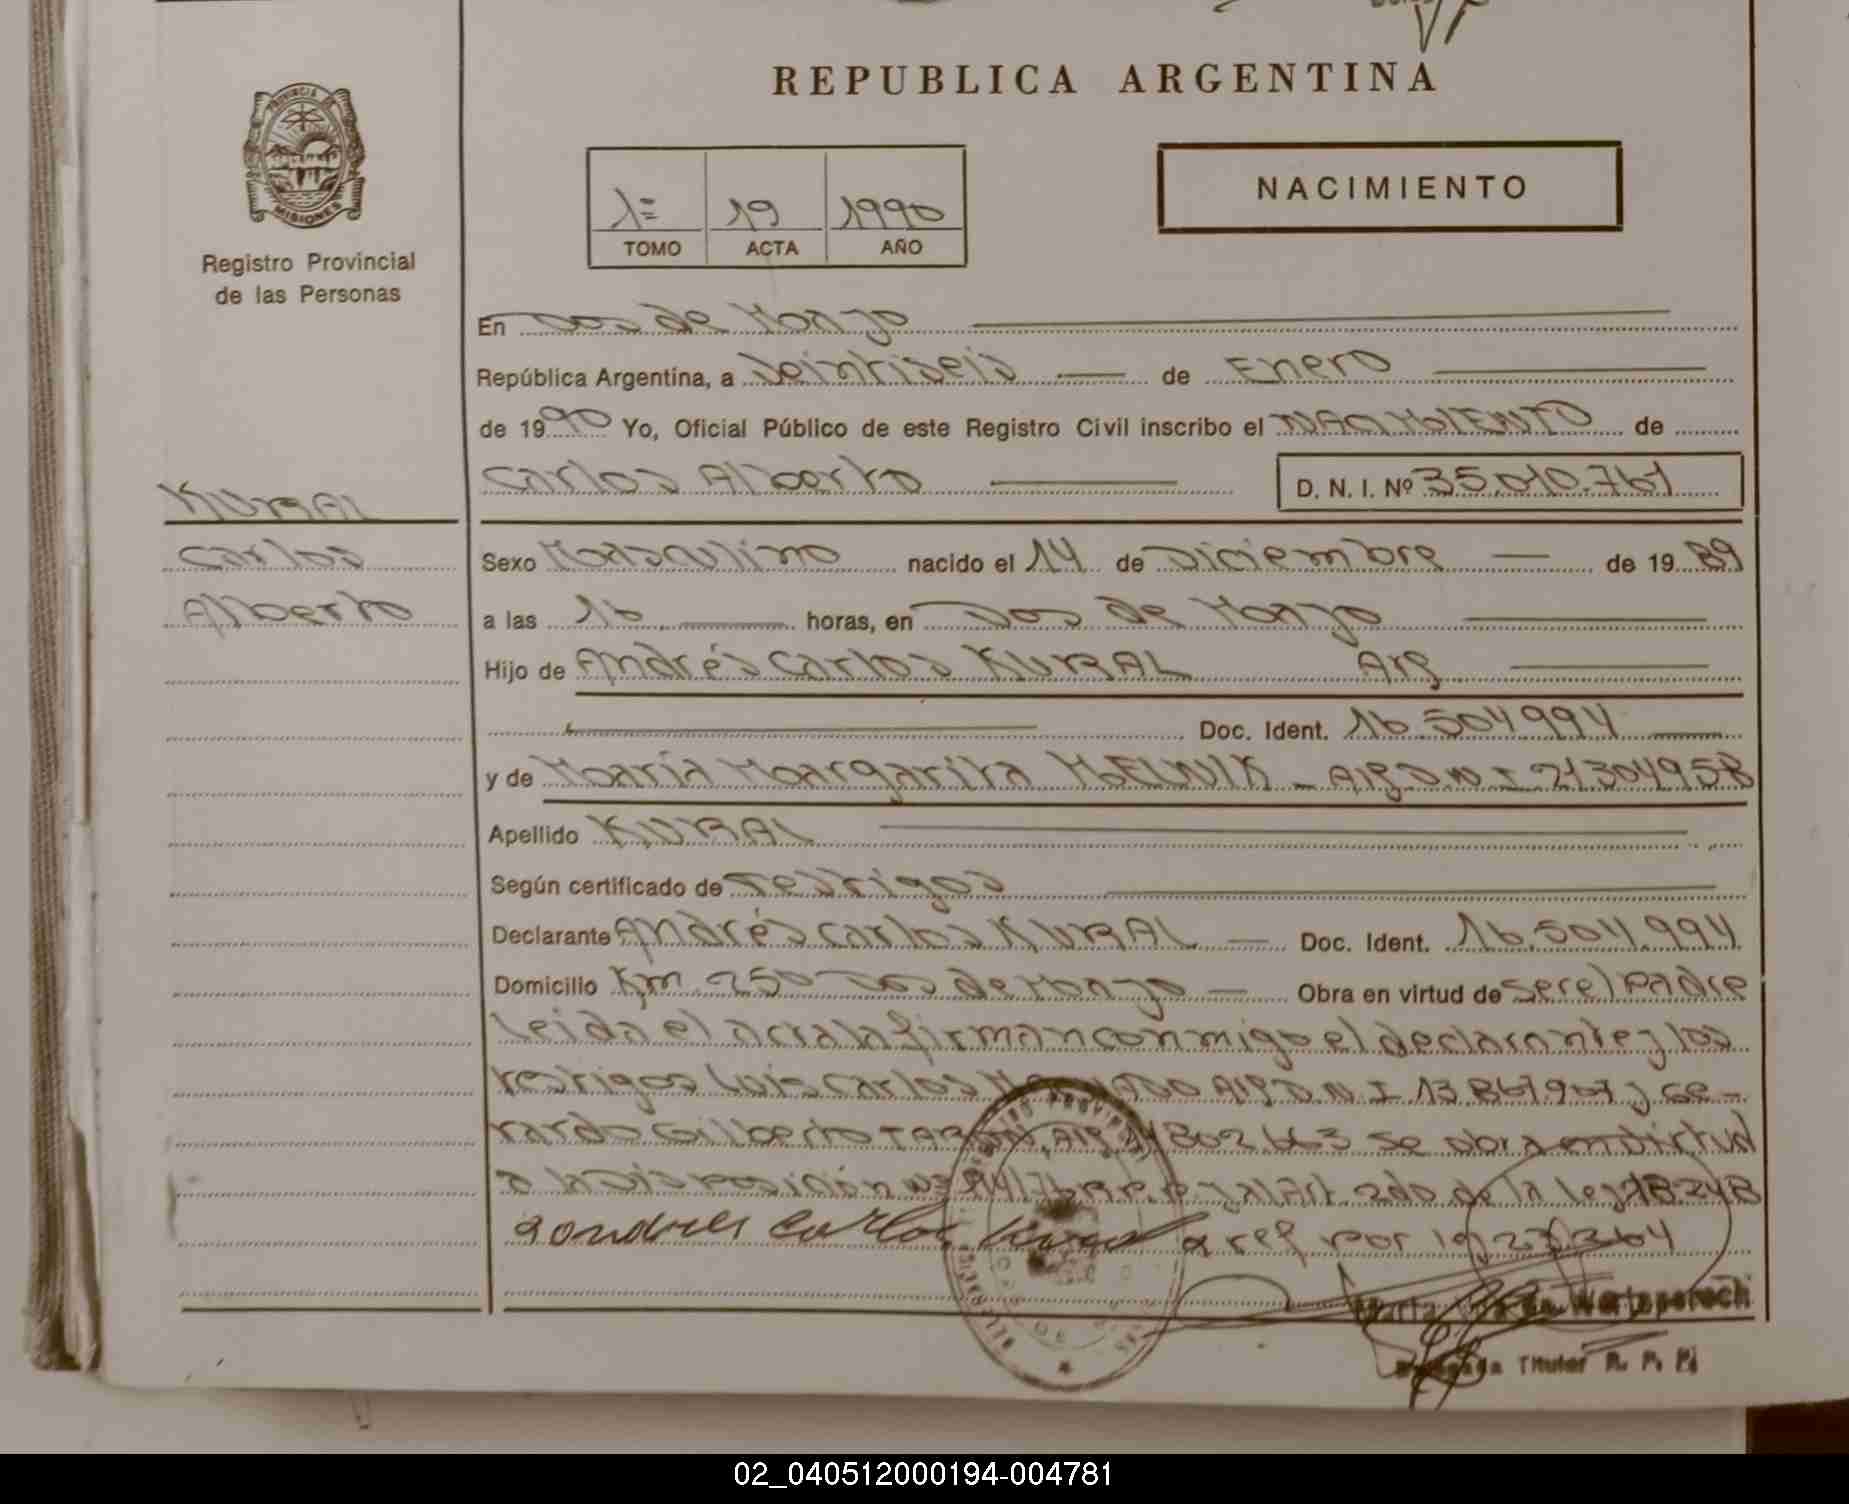 REPUBLICA ARGENTINA
PROVINCIA DE
MISIONES
Registro Provincial
de las Personas
NACIMIENTO
1º 19 1990
TOMO ACTA AÑO
En Dos de Mayo
República Argentina, a Veintiseis de Enero
de 1990 Yo, Oficial Público de este Registro Civil inscribo el NACIMIENTO de
Carlos Alberto D. N. I. Nº 35.010.761
KURAL
Carlos
Alberto
Sexo Masculino nacido el 14 de Diciembre de 1989
a las 16 horas, en Dos de Mayo
Hijo de Andrés Carlos KURAL Arg
Doc. Ident. 16.504.994
y de María Margarita MELNIK - Arg D.N.I 21304958
Apellido KURAL
Según certificado de Testigos
Declarante Andrés Carlos KURAL Doc. Ident. 16.504.994
Domicilio Km 250 Dos de Mayo Obra en virtud de ser el Padre
Leida el acta la firman conmigo el declarante y los
testigos Luis Carlos Arg D.N.I 13.867.907 y Ge-
rardo Gilberto Arg 802.663 Se obra en virtud
a la Disposición Nº y al Art 2do de la Ley 18.248
Andres Carlos Kural a ref por 19
Marta de
Delegada Titular R. P. P.
02_040512000194-004781